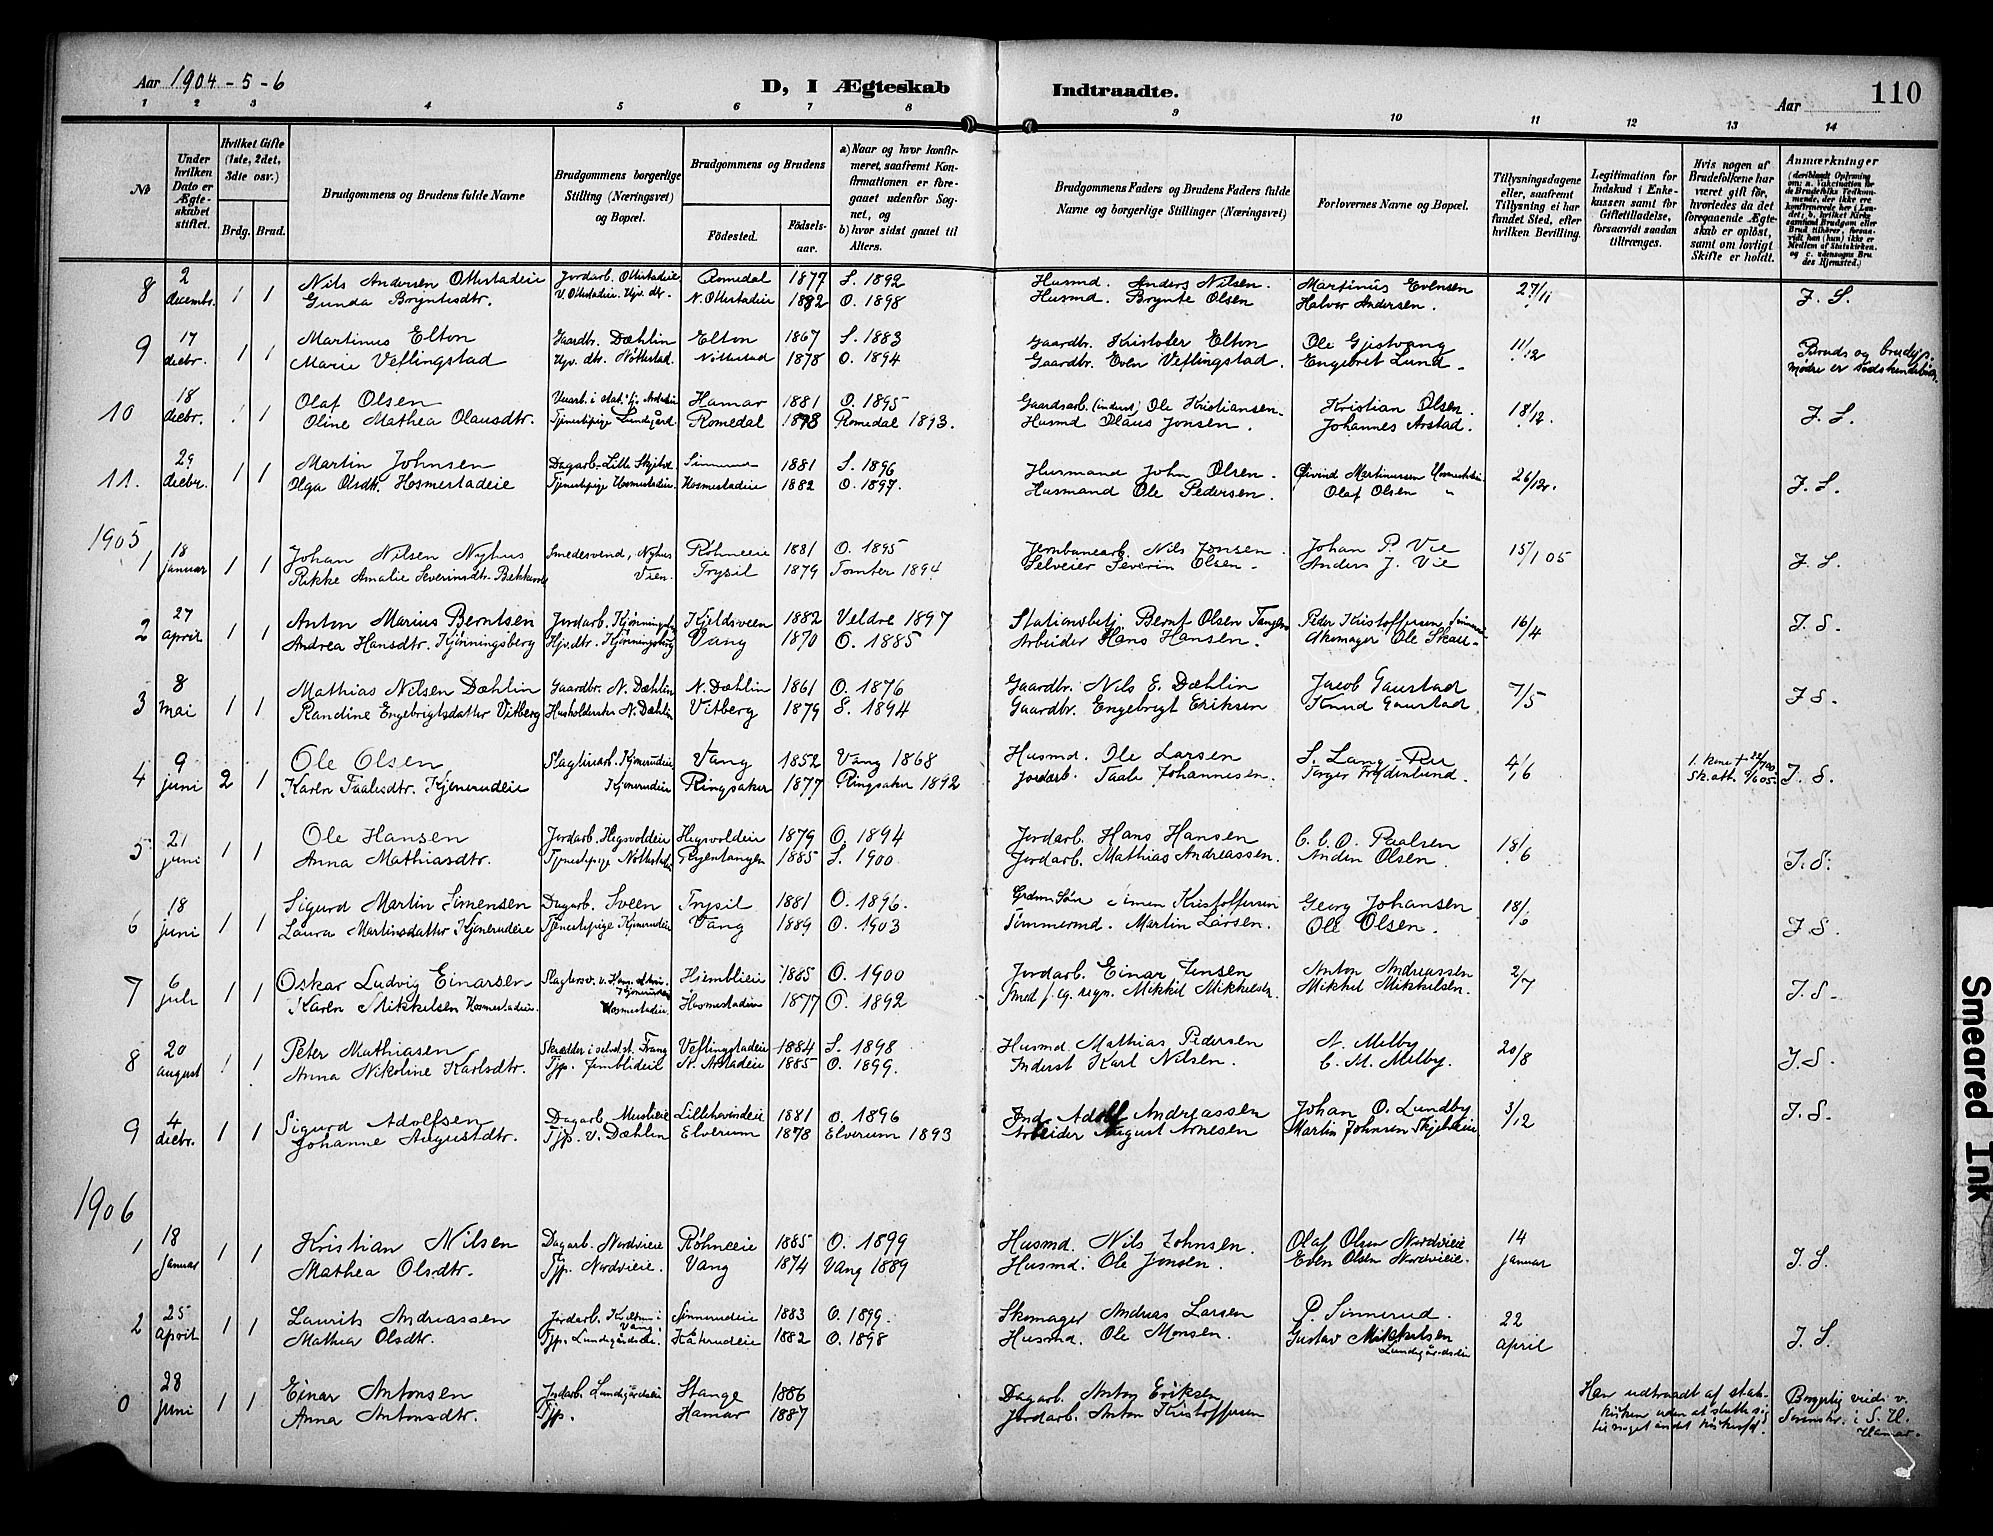 Aar 1904-5-6
D, I Ægteskab Indtraadte.
Aar
110
1 2 3 4 5 6 7 8 9 10 11 12 13 14
No
Under hvilken Dato er Ægteskabet stiftet.
Hvilket Gifte (1ste, 2det, 3die osv.)
Brdg. Brud.
Brudgommens og Brudens fulde Navne
Brudgommens borgerlige Stilling (Næringsvei) og Bopæl.
Brudgommens og Brudens
Fødested.
Fødselsaar.
a) Naar og hvor konfirmeret, saafremt Konfirmationen er foregaaet udenfor Sognet, og
b) hvor sidst gaaet til Alters.
Brudgommens Faders og Brudens Faders fulde Navne og borgerlige Stillinger (Næringsvei)
Forlovernes Navne og Bopæl.
Tillysningsdagene eller, saafremt Tillysning ei har fundet Sted, efter hvilken Bevilling.
Legitimation for Indskud i Enkekassen samt for Giftetilladelse, forsaavidt saadan tiltrænges.
Hvis nogen af Brudefolkene har været gift før, hvorledes da det foregaaende Ægteskab er opløst, samt om lovligt Skifte er holdt.
Anmærkninger
8 2 decembr. 1 1 Nils Andersen Ottestadeie Jordarb. Ottestadeie Romedal 1877 S. 1892 Husmd. Anders Nilsen. Martinus Evensen 27/11 J. S.
Gunda Bryntesdtr. N. Ottestadeie 1882 O. 1898 Husmd. Brynte Olsen Halvor Andersen.
9 17 decbr. 1 1 Martinus Elton Gaardbr. Dæhlin Elton 1867 S. 1883 Gaardbr. Kristofer Elton Ole Gjistvang 11/12 Bruds og brudg.
Marie Veflingstad Nøttestad 1878 O. 1894 Gaardbr. Even Veflingstad. Engebret Lund. mødre er sødskendebørn.
10 18 decbr. 1 1 Olaf Olsen Hamar 1881 O. 1895 Gaardsarb. (inderst) Ole Kristiansen Kristian Olsen. 18/12. J. S.
Oline Mathea Olausdtr. Tjenestepige Lundgård. Romedal 1878 Romedal 1893. Husmd Olaus Jonsen. Johannes Arstad.
11. 29 decbr. 1 1 Martin Johnsen Dagarb. Lille 1881 S. 1896 Husmand John Olsen. Øivind Martinussen 26/12. J. S.
Olga Olsdtr. Hosmestadeie Tjenestepige Hosmestadeie. Hosmestadeie 1882 O. 1897. Husmand Ole Pedersen. Olaf Olsen "
1905
1 18 januar 1 1 Johan Nilsen Nyhus Smedesvend, Nyhus Røhneeie 1881 O. 1895 Jernbanearb. Nils Jonsen Johan P. Vie 15/1 05 J. S.
Rikke Amalie Severinsdtr. Vien. Trysil 1879 Tomter 1894 Selveier Severin Olsen. Anders J. Vie
2 27 april 1 1 Anton Marius Berntsen Jordarb. Kjønningsbg Kjeldsveen 1882 Veldre 1897 Stationsbetj. Bernt Olsen Tangen Peder Kristoffersen 16/4 J. S.
Andrea Hansdtr. Kjønningsberg Kjønningsberg Vang 1870 O. 1885 Arbeider Hans Hansen. Ole Skau
3 8 mai 1 1 Mathias Nilsen Dæhlin Gaardbr. N. Dæhlin N. Dæhlin 1861 O. 1876 Gaardbr. Nils E. Dæhlin Jacob Gaustad 7/5 J. S.
Randine Engebrigtsdatter Vitberg Husholderske N. Dæhlin Vitberg 1879 S. 1894 Gaardbr. Engebrigt Eriksen Knud Gaustad
4 9 juni 2 1 Ole Olsen Kjonerudeie Vang 1852 Vang 1868 Husmd. Ole Larsen 4/6 1. kone † J. S.
Karen Taalesdtr. Kjonerudeie Kjonerudeie Ringsaker 1877 Ringsaker 1892 Jordarb. Taale Johannesen Torger Frydenlund.
5 21 juni 1 1 Ole Hansen Jordarb. Hegsvoldeie Hegsvoldeie 1879 O. 1894 Jordarb. Hans Hansen C. C. O. Paalsen 18/6 J. S.
Anna Mathiasdtr. Tjenestepige 1885 S. 1900 Jordarb. Mathias Andreassen. Anders Olsen.
6 18 juni 1 1 Sigurd Martin Simensen Dagarb. Sveen Trysil 1881 O. 1896. Simen Kristoffersen Georg Johansen 18/6 J. S.
Laura Martinsdatter Kjonerudeie Tjenestepige Kjonerudeie Vang 1889 O. 1903 Tømmermd. Martin Larsen. Ole Olsen.
7 6 juli 1 1 Oskar Ludvig Einarsen Hjemblieie 1885 O. 1900 Jordarb. Einar Jensen Anton Andreassen 2/7 J. S.
Karen Mikkelsen Hosmestadeie. Hosmestadeie Hosmestadeie 1877 O. 1892 Mikkel Mikkelsen Mikkel Mikkelsen.
8 20 august 1 1 Peter Mathiasen Skrædder i selvst. Frang Veflingstadeie 1884 S. 1898 Husmd. Mathias Pedersen N. Melby 20/8 J. S.
Anna Nikoline Karlsdtr. Tjp. N. Arstadeie 1885 O. 1899. Inderst Karl Nilsen. C. M. Melby.
9 4 decbr. 1 1 Sigurd Adolfsen Dagarb. Lillehovindeie 1881 O. 1896 Ind. Adolf Andreassen Johan O. Lundby 3/12 J. S.
Johanne Augustdtr. Tjp. v. Dæhlin Elverum 1878 Elverum 1893 Arbeider August Arnesen Martin Johnsen
1906
1 18 januar 1 1 Kristian Nilsen Dagarb. Nordvieie Røhneeie 1885 O. 1899 Husmd. Nils Johnsen. Olaf Olsen Nordvieie 14 januar J. S.
Mathea Olsdtr. Tjp. Nordvieie. Vang 1874 Vang 1889 Husmd. Ole Jonsen. Even Olsen Nordvieie.
2 25 april 1 1 Laurits Andreassen Jordarb. i Vang. Sinnerudeie 1883 O. 1899. Skomager Andreas Larsen P. Sinnerud. 22 april J. S.
Mathea Olsdtr. Tjp. Lundgårdseie. 1882 O. 1898 Husmd. Ole Monsen. Gustav Mikkelsen Lundgårdseie
0 28 juni 1 1 Einar Antonsen Jordarb. Lundgårdseie Stange 1886 Dagarb. Anton Eriksen Han udtraadt af statskirken uden at slutte sig til noget andet kirkesfd. Borgerlig viede v.
Anna Antonsdtr. Tjp. Hamar 1887 Jordarb. Anton Kristoffersen Sorenskr. i S. H. Hamar.
Smeared Ink